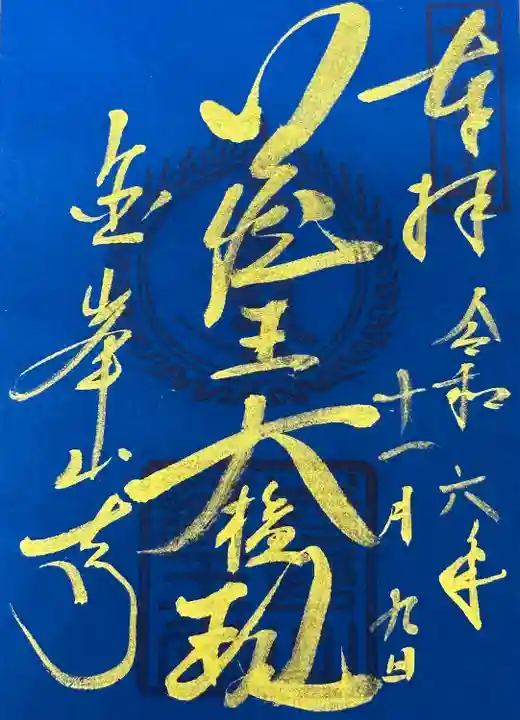 奉拝
令和六年
十一月九日
蔵王大権現
金峯山寺